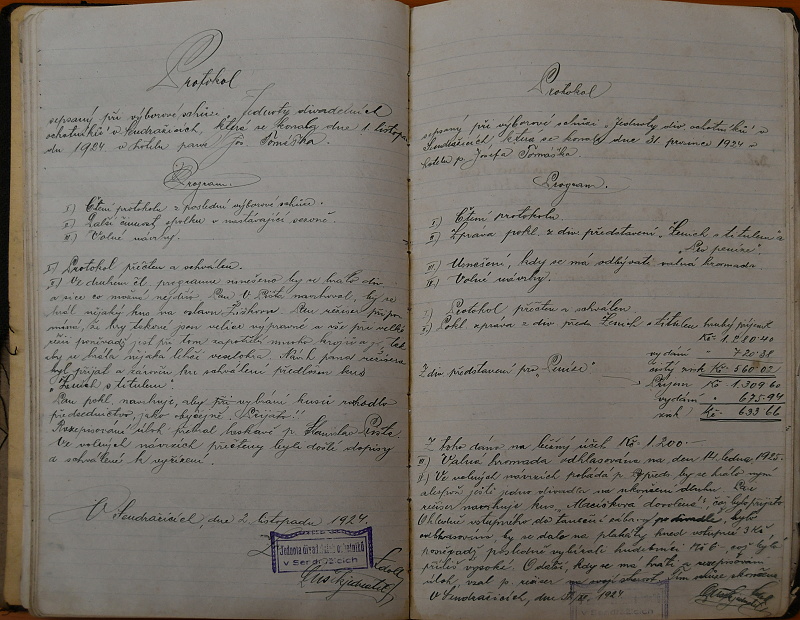 Protokol
sepsaný při výborové schůze Jednoty divadelních
ochotníků v Sendražicích, která se konala dne 1. listopa-
du 1924 v hotelu pana Jos. Tomáška.
Program.
I) Čtení protokolu z poslední výborové schůze.
II) Další činnost spolku v nastávající sezoně.
III) Volné návrhy.
I) Protokol přečten a schválen.
II) Ve druhém čl. programu usnešeno by se hrálo div.
a sice co možná nejdřív. Pan V. navrhoval, by se
hrál nějaký kus na oslavu Žižkovu. Pan režiser při po-
míná, že hry takové jsou velice výpravné a vše při velké
režii poněvadž jest při tom zapotřebí mnoho krojů a j., tak
aby se hrála nějaká lehčí veselohra. Návrh pana režisera
byl přijat a zároveň ke schválení předložen kus
„Ženich s titulem".
Pan pokl. navrhuje, aby při vybrání kusů rozhodlo
předsednictvo, jako obyčejně. Přijato!
Rozepisování úloh přebral laskavě p. Stanislav
Ve volných návrzích přečteny byly došlé dopisy
a schválené k vyřízení.
V Sendražicích, dne 2. listopadu 1924.
Jednota divadelních ochotníků
v Sendražicích
Protokol
sepsaný při výborové schůzi „Jednoty div. ochotníků" v
Sendražicích, která se konala dne 31. prosince 1924 v
hotelu p. Josefa Tomáška.
Program.
I) Čtení protokolu.
II) Zpráva pokl. z div. představení „Ženich s titulem" a
peníze".
III) Usnešení, kdy se má odbývati valná hromada.
IV) Volné návrhy.
I) Protokol, přečten a schválen.
II) Pokl. zpráva z div. předs. Ženich s titulem hrubý příjem
Kč 1.280·40
vydání „ 720·38
čistý zisk Kč 560·02
Z div. představení pro „Peníze"
Příjem Kč 1.309·60
vydání „ 675·94
zisk Kč 633·66
Z toho dáno na běžný účet Kč 1.200·–
III) Valná hromada odhlasována na den 14. ledna 1925.
Ve volných návrzích pobádá p. předs. by se hrálo nyní
alespoň jestli jedno divadlo na ukončení dluhu. Pan
režiser navrhuje kus „Macíčkova dovolená", což bylo přijato.
Ohledně vstupného do taneční zábavy po divadle, bylo
odhlasováno, by se dalo na plakáty hned vstupné 3 Kč
poněvadž posledně vybírali hudebníci Kč 6·– což bylo
příliš vysoké. O datu, kdy se má hráti a rozepisování
úloh, vzal p. režiser na svoji starost. Tím schůze skončena
V Sendražicích, dne XII. 1924